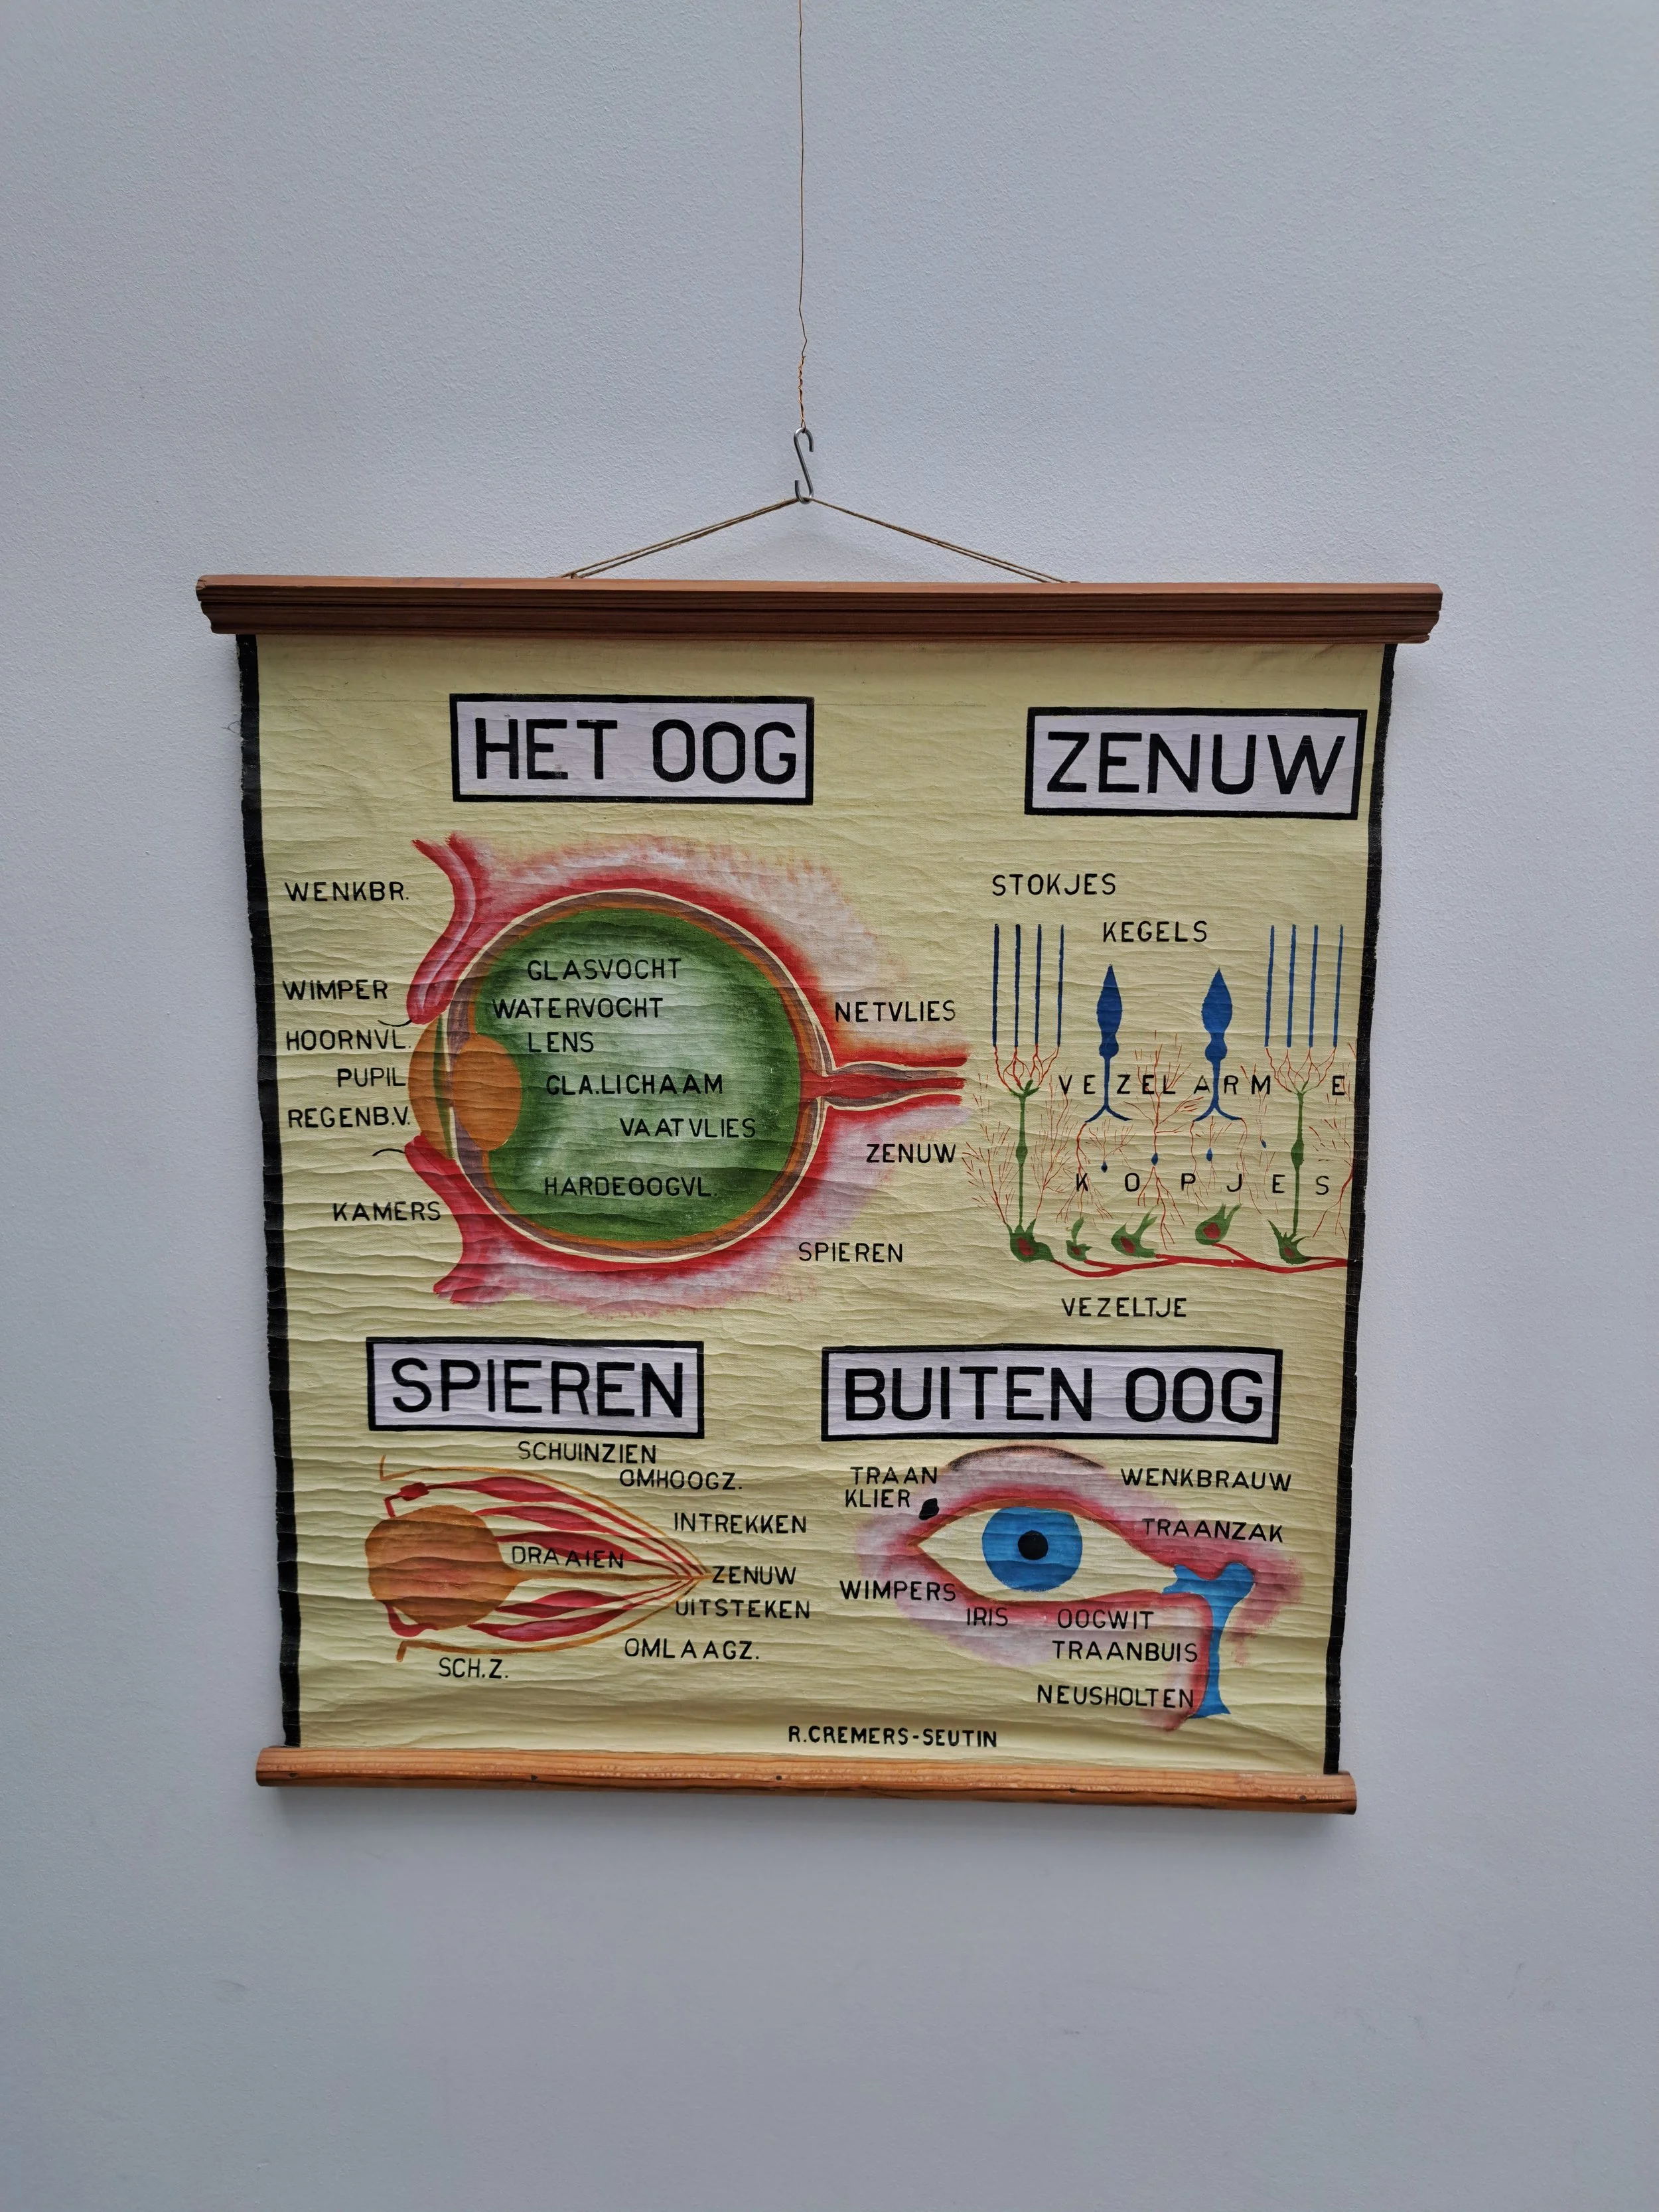 HET OOG
WENKBR.
WIMPER
HOORNVL.
PUPIL
REGENB.V.
KAMERS
GLASVOCHT
WATERVOCHT
LENS
GLA.LICHAAM
VAATVLIES
HARDEOOGVL.
NETVLIES
ZENUW
SPIEREN
ZENUW
STOKJES
KEGELS
VEZELARM E
KOPJES
VEZELTJE
SPIEREN
SCHUINZIEN
OMHOOGZ.
INTREKKEN
DRAAIEN
ZENUW
UITSTEKEN
OMLAAGZ.
SCH.Z.
BUITEN OOG
TRAAN
KLIER
WENKBRAUW
TRAANZAK
WIMPERS
IRIS
OOGWIT
TRAANBUIS
NEUSHOLTEN
R.CREMERS-SEUTIN